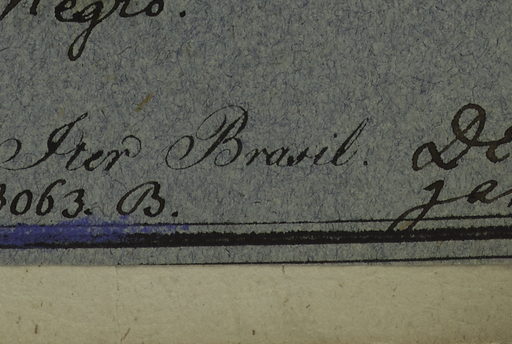 Negro.
Iter Brasil. De
3063. B. jan